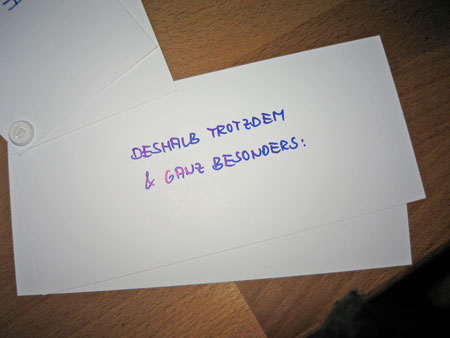 DESHALB TROTZDEM
& GANZ BESONDERS: